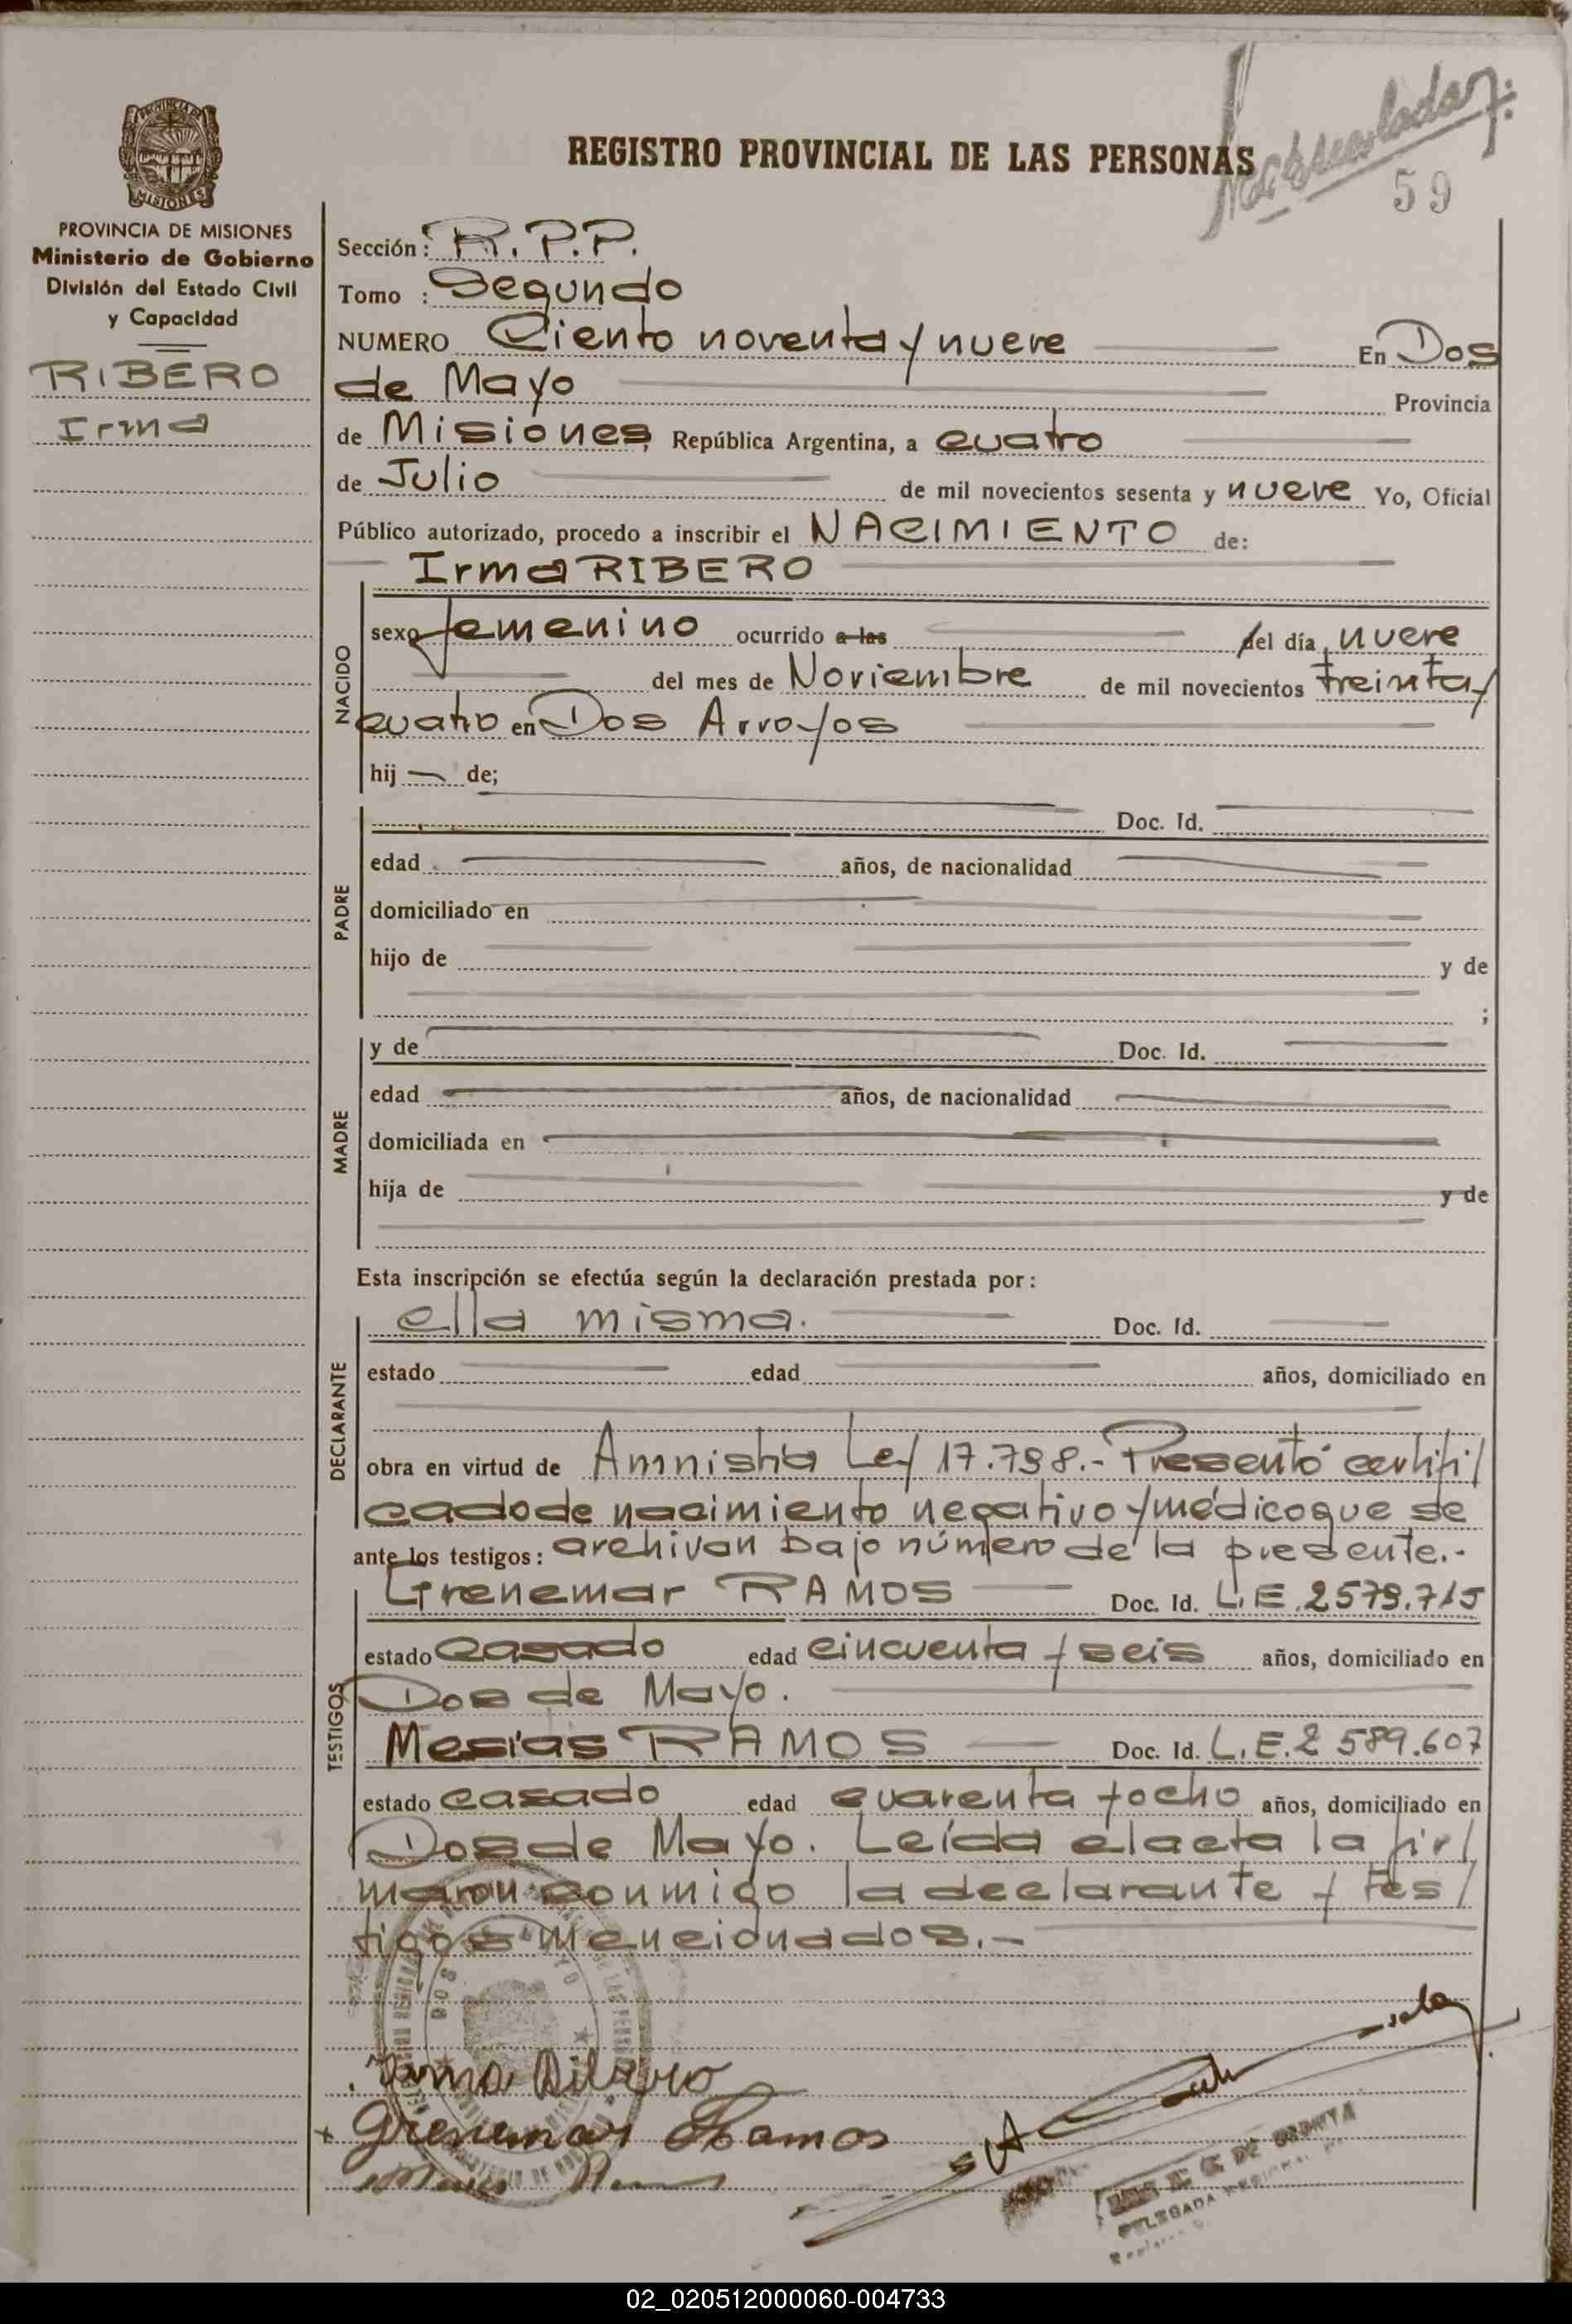 REGISTRO PROVINCIAL DE LAS PERSONAS
59
MISIONES
PROVINCIA DE MISIONES
Ministerio de Gobierno
División del Estado Civil
y Capacidad
RIBERO
Irma
Sección: R.P.P.
Tomo : Segundo
NUMERO Ciento noventa y nueve En Dos
de Mayo Provincia
de Misiones, República Argentina, a cuatro
de Julio de mil novecientos sesenta y nueve Yo, Oficial
Público autorizado, procedo a inscribir el NACIMIENTO de:
Irma RIBERO
NACIDO
sexo femenino ocurrido a las del día nueve
del mes de Noviembre de mil novecientos treinta y
cuatro en Dos Arroyos
hij de;
PADRE
Doc. Id.
edad años, de nacionalidad
domiciliado en
hijo de y de
;
MADRE
y de Doc. Id.
edad años, de nacionalidad
domiciliada en
hija de y de
Esta inscripción se efectúa según la declaración prestada por:
DECLARANTE
ella misma. Doc. Id.
estado edad años, domiciliado en
obra en virtud de Amnistía Ley 17.798.- Presentó certifi/
cado de nacimiento negativo y médico que se
ante los testigos: archivan bajo número de la presente.-
TESTIGOS
Grenemar RAMOS Doc. Id. L.E. 2579.715
estado casado edad cincuenta y seis años, domiciliado en
Dos de Mayo.
Mesías RAMOS Doc. Id. L.E. 2 589.607
estado casado edad cuarenta y ocho años, domiciliado en
Dos de Mayo. Leída el acta la fir/
maron conmigo la declarante y tes/
tigos mencionados.-
Irma Ribero
Grenemar Ramos
DELEGADA
02_020512000060-004733